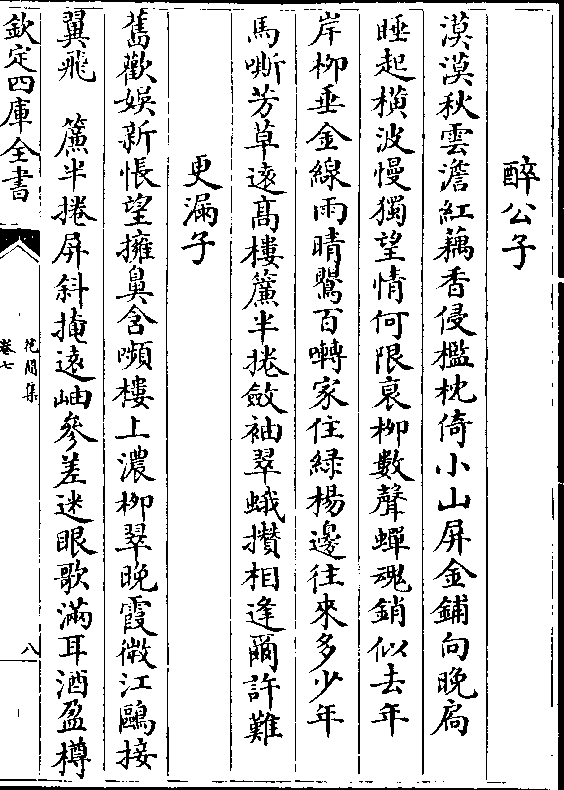 醉公子
漠漠秋雲澹紅藕香侵檻枕倚小山屏金鋪向晚扃
睡起橫波慢獨望情何限衰柳數聲蟬魂銷似去年
岸柳垂金線雨晴鸎百囀家住緑楊邊往來多少年
馬嘶芳草遠髙樓簾半捲斂袖翠蛾攢相逢爾許難
更漏子
舊歡娛新悵望擁鼻含嚬樓上濃柳翠晚霞微江鷗接
翼飛 簾半捲屏斜掩遠岫參差迷眼歌滿耳酒盈樽
欽定四庫全書
花間集
卷七
八